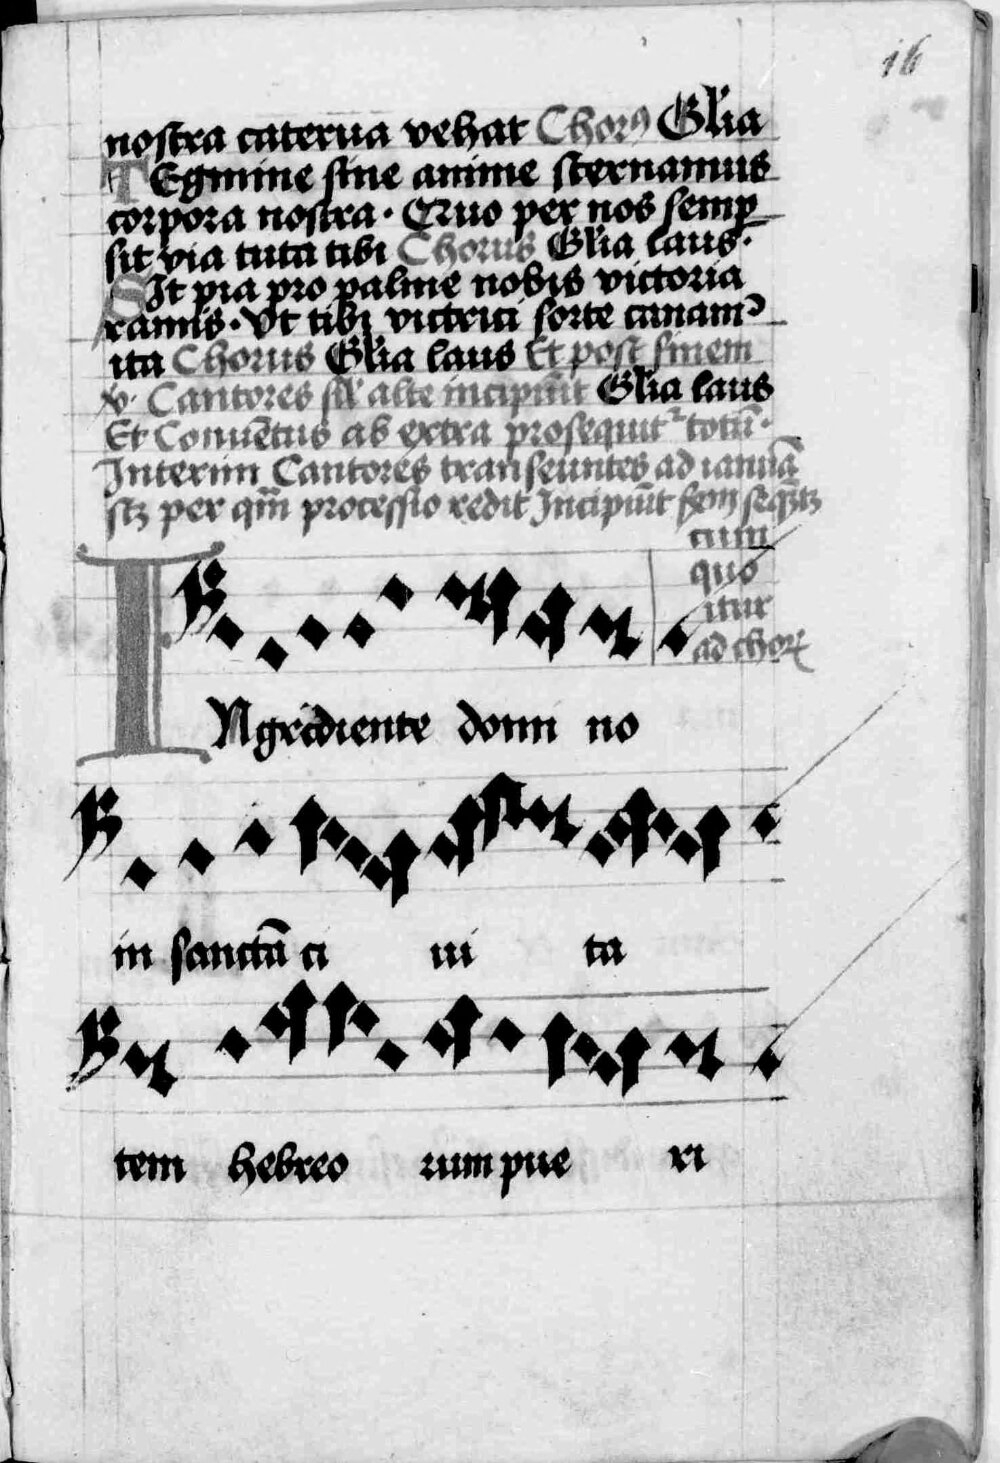 16
nostra caterua vehat Chorꝰ Gl̄ia
TEgmine sine anime sternamus
corpora nostra · Quo per nos semp̲
sit via tuta tibi Chorus Gl̄ia laus ·
SIt pia pro palme nobis victoria
ramis · Vt tibi victrici sorte canamꝰ
ita Chorus Gl̄ia laus Et post finem
v̷ · Cantores sil̄ alte incipiūt Gl̄ia laus
Et Conuētus ab extra prosequit᷑ totū ·
Interim Cantores transeuntes ad ianuā
per qm̄ processio redit Incipiūt
cum
quo
itur
ad chorꝝ
INgrediente domi no
in sanctā ci ui ta
tem hebreo rum pue ri